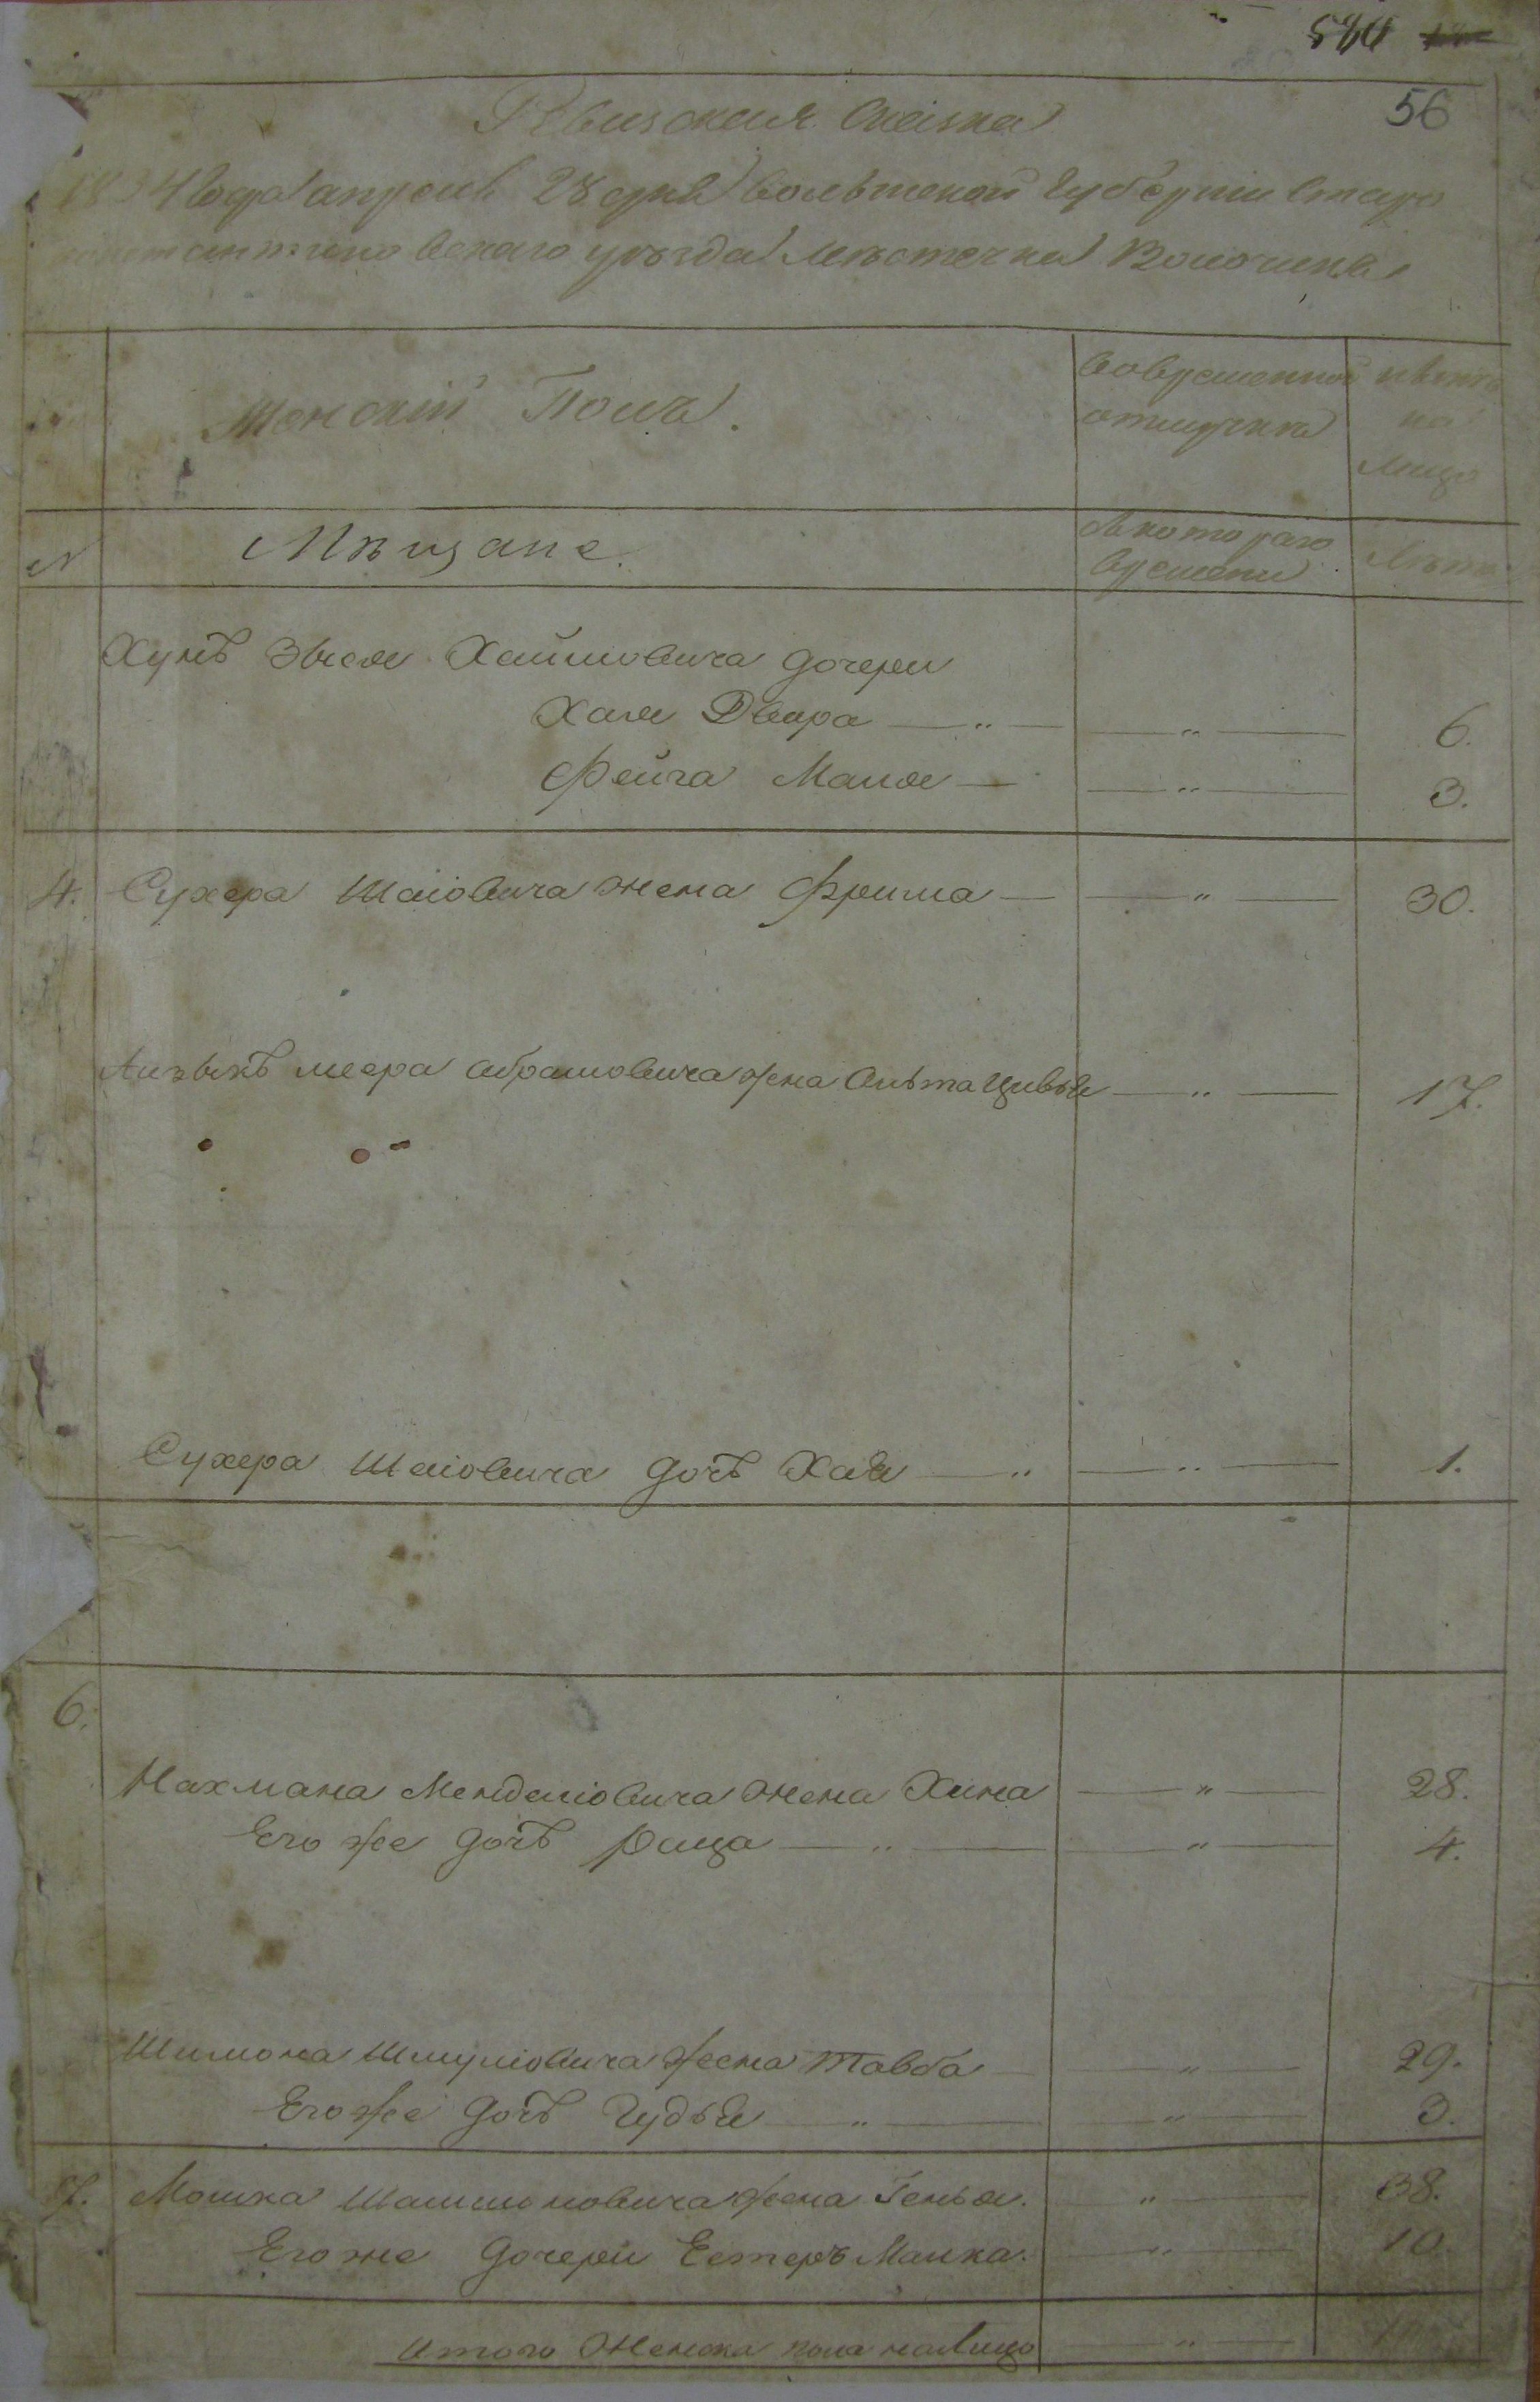 540
56
Ревизская Сказка
1834 года апреля 28 дня Волынской Губернии Старо
константиновскаго уезда местечка Волочиска
Женский Полъ.
Во временной отлучке
Ныне на лицо
N
Мѣщане.
Съ котораго времени
Лета
Хунъ Эвсея Хаимовича дочери
Хая Двира — „ — — „ — 6.
Фейга Маля — — „ — 3.
4. Сухера Шаiовича жена Фрима — — „ — 30.
меера абрамовича жена Цивья — „ — 17.
Сухера Шаiовича дочь Хая — „ — „ — 1.
6.
Нахмана Менделiовича жена Хина — „ — 28.
Его же дочь Раца — „ — — „ — 4.
Шимона Шмулiовича жена Товба — „ — 29.
Его же дочь Гудья — „ — — „ — 3.
7. Мошка Шлиомовича жена Генья. „ — 38.
Его же дочери Естеръ Малка. — „ — 10.
Итого Женска пола налицо — „ —